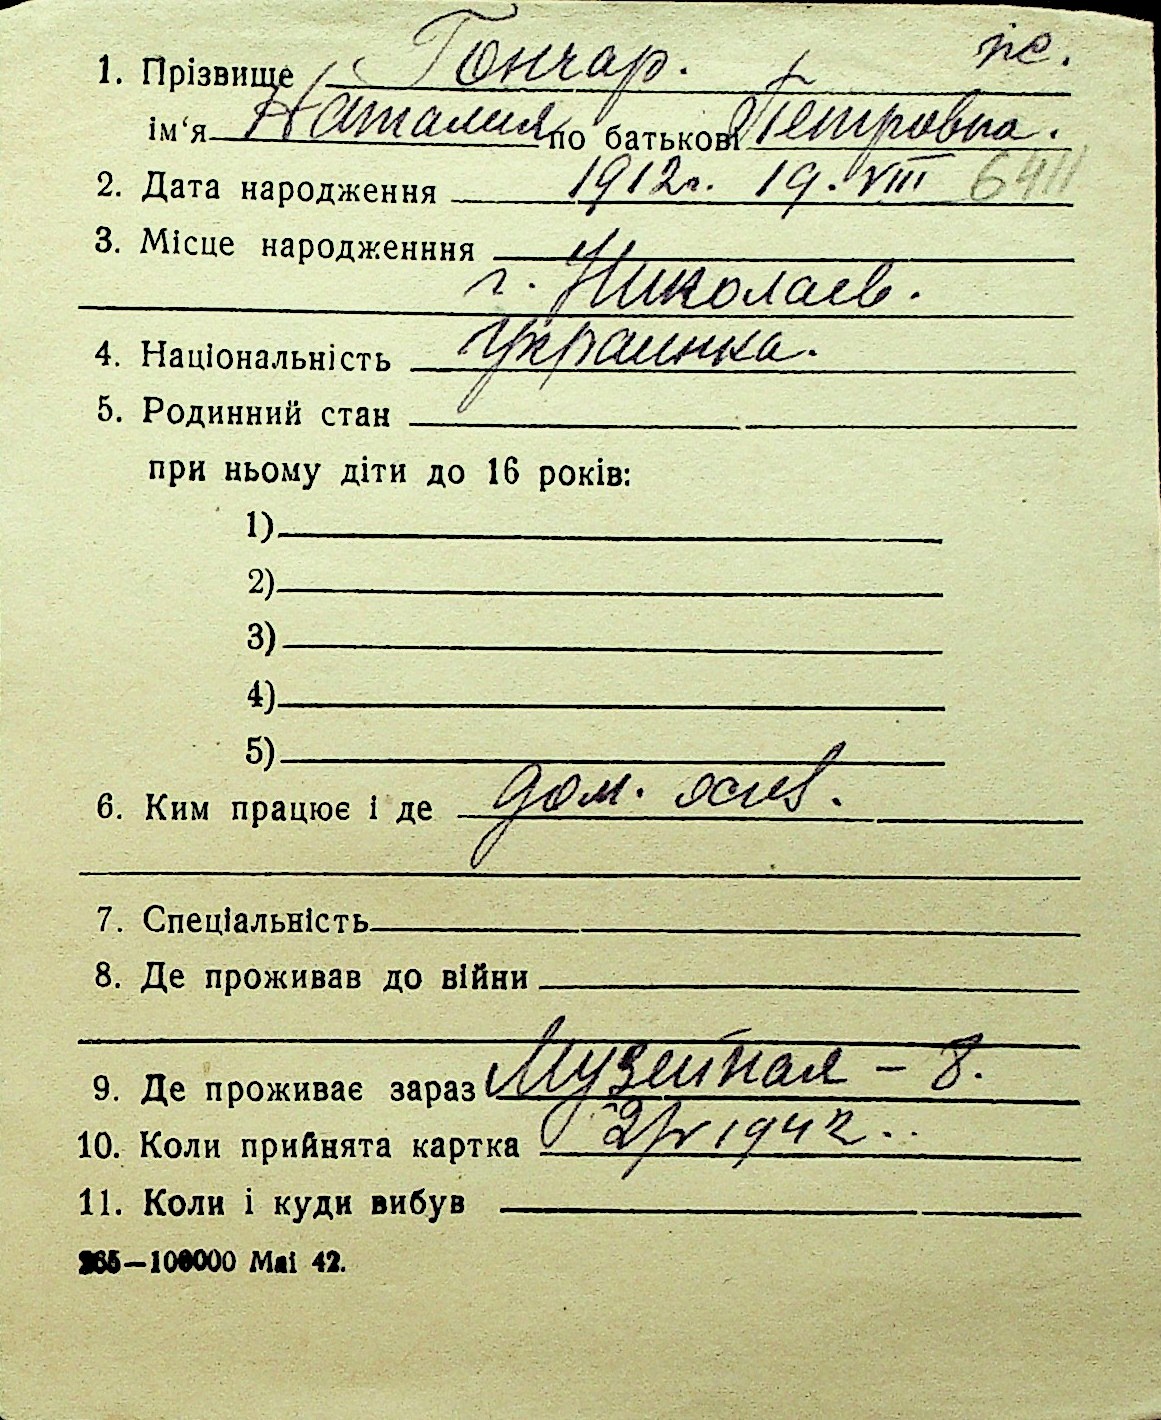 1. Прізвище Гончар. пс.
ім‘я Наталия по батькові Петровна.
2. Дата народження 1912г. 19. VIII 6411
3. Місце народженння
г. Николаев.
4. Національність Украинка.
5. Родинний стан
при ньому діти до 16 років:
1)
2)
3)
4)
5)
6. Ким працює і де дом.
7. Спеціальність
8. Де проживав до війни
9. Де проживає зараз Музейная – 8.
10. Коли прийнята картка 1942.
11. Коли і куди вибув
265—100000 Маі 42.